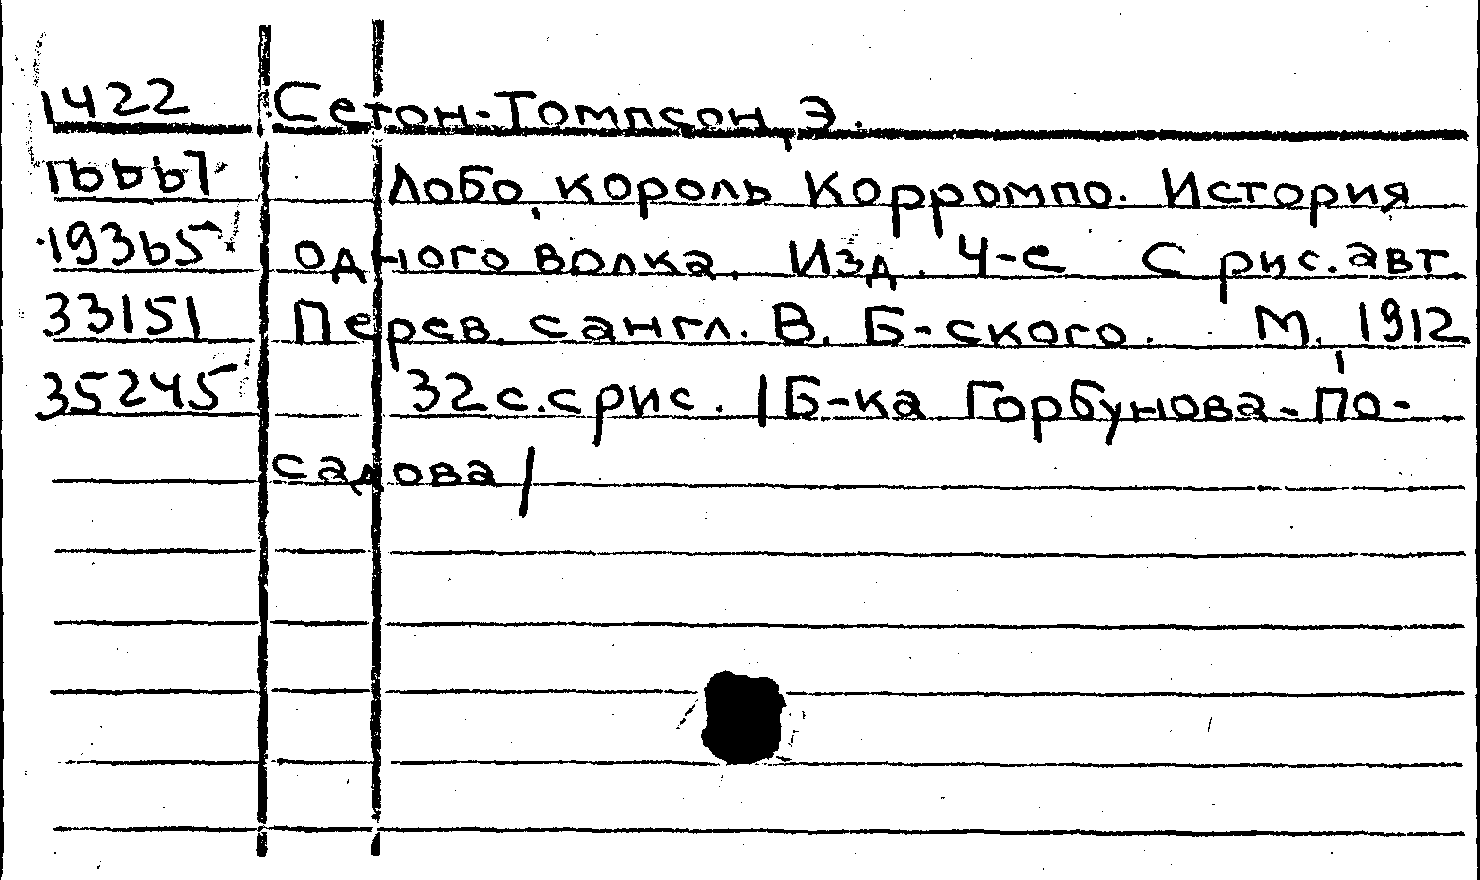 1422 Сетон-Томпсон, Э.
16667 Лобо, король Корромпо. История
19365 одного волка. Изд. 4-е С рис. авт.
33151 Перев. с англ. В. Б-ского. М., 1912
35245 32 с. с рис. /Б-ка Горбунова-По-
садова/